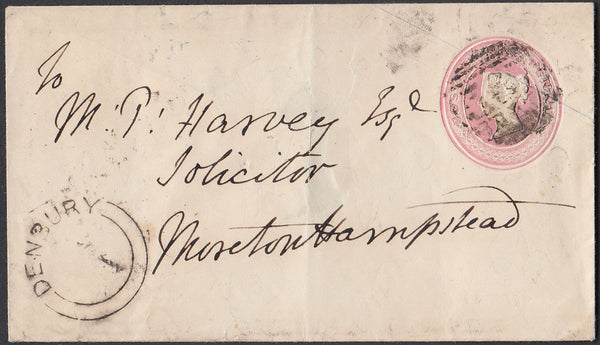 To
M. P. Harvey Esqe
Solicitor
MoretonHampstead
DENBURY